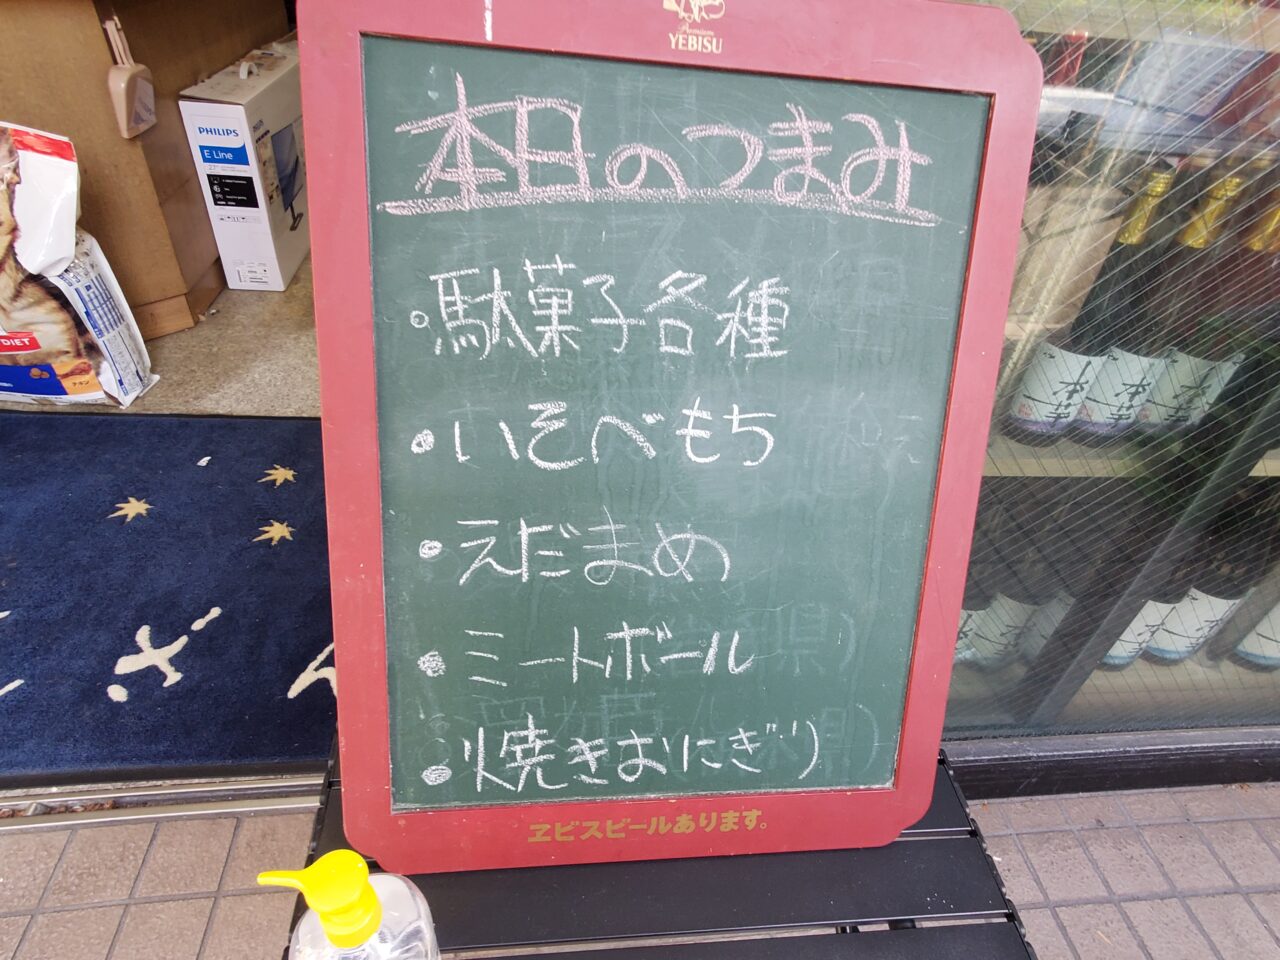 Premium
YEBISU
本日のつまみ
・駄菓子各種
・いそべもち
・えだまめ
・ミートボール
・焼きおにぎり
ヱビスビールあります。
PHILIPS
E Line
27"
DIET
チキン